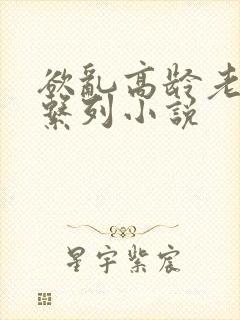 欲亂高龄老
繫列小說
星宇紫宸